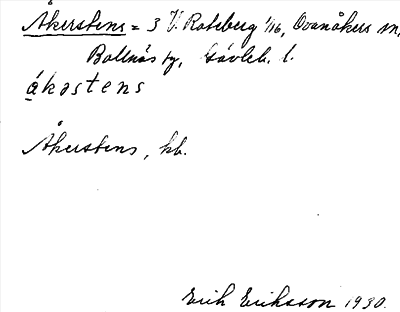 Åkerstens = 3 V. Roteberg 1/16, Ovanåkers sn,
Bollnäs tg, Gävleb. l.
åkastens
Åkerstens, kb.
Erik Eriksson 1930.